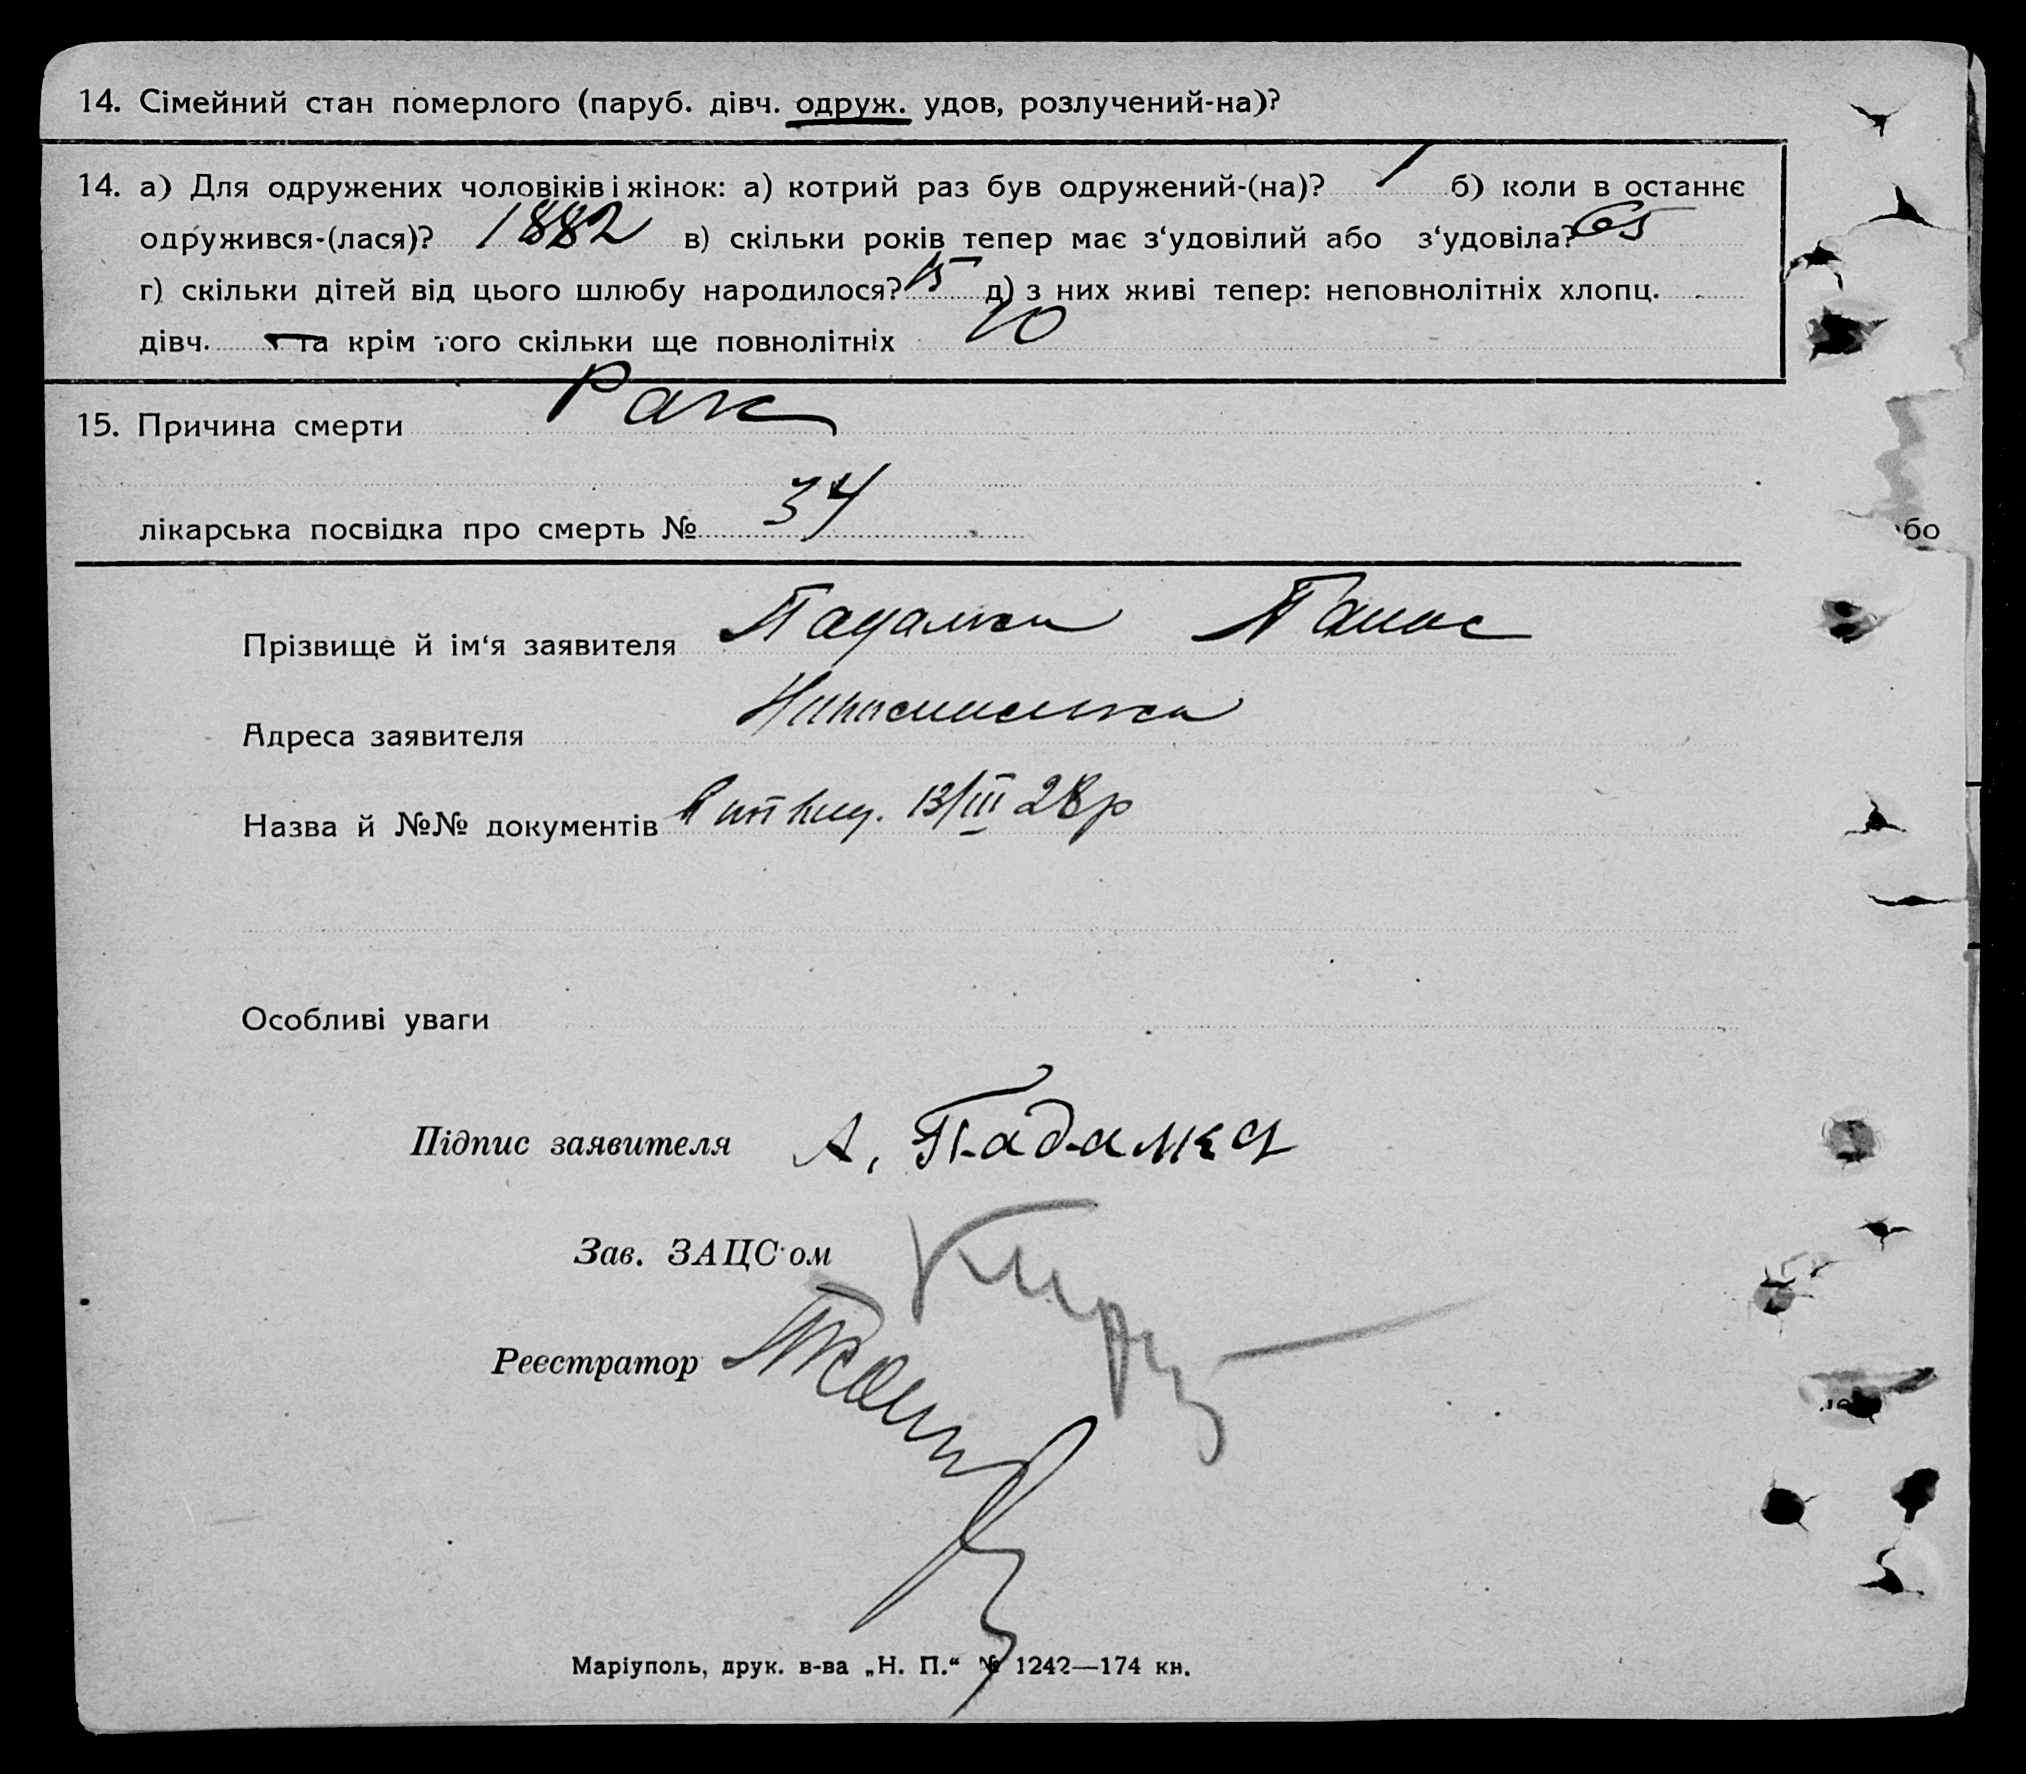 14. Сімейний стан померлого (паруб. дівч. одруж. удов, розлучений-на)?
14. а) Для одружених чоловіків і жінок: а) котрий раз був одружений-(на)? 1 б) коли в останнє
одружився-(лася)? 1882 в) скільки років тепер має з‘удовілий або з‘удовіла? 65
г) скільки дітей від цього шлюбу народилося? 15 д) з них живі тепер: неповнолітніх хлопц. -
дівч. - та крім того скільки ще повнолітніх 10
15. Причина смерти Рак
лікарська посвідка про смерть № 34
або
Прізвище й ім‘я заявителя Падалка Панас
Адреса заявителя
Назва й №№ документів 13/III 28р
Особливі уваги
Підпис заявителя А. Падалка
Зав. ЗАЦС‘ом
Реєстратор
Маріуполь, друк. в-ва „Н. П.“ № 1242—174 кн.